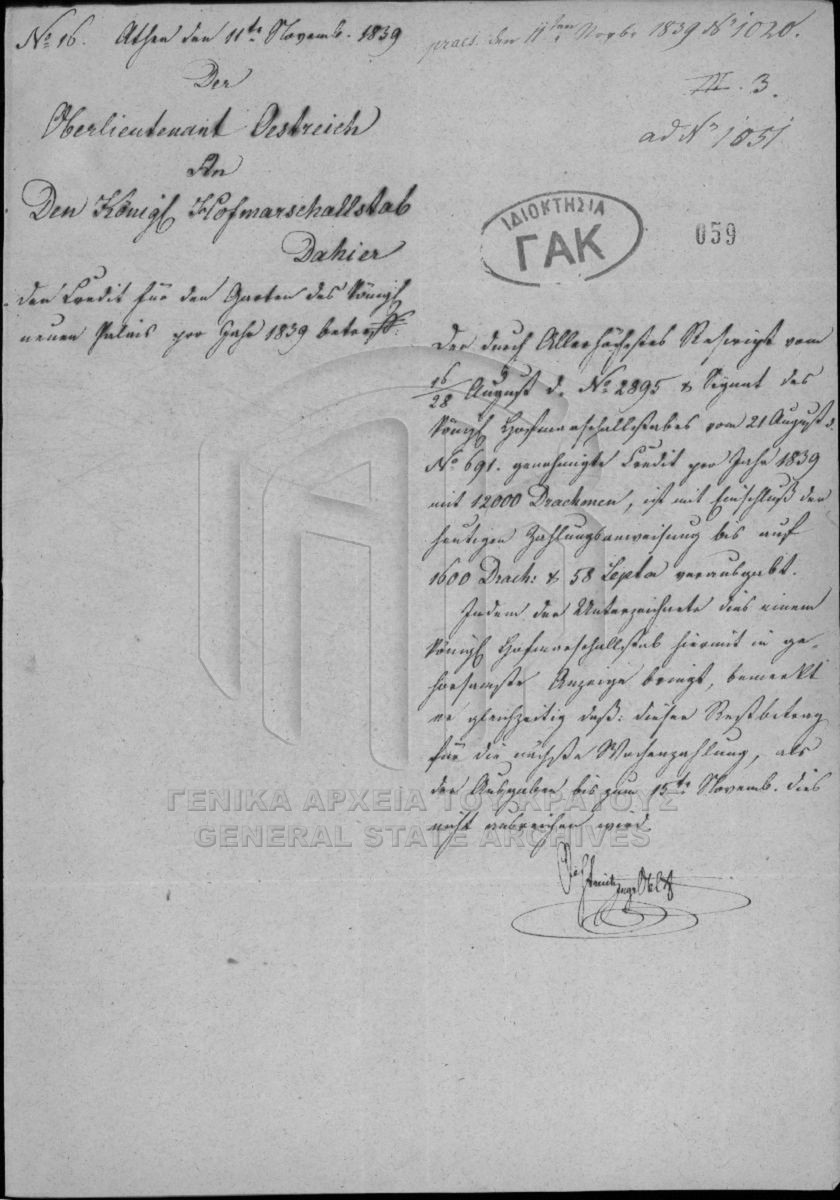 No 16. Athen den 11ten Novemb. 1839
praes. den 11ten Novbr 1839 No 1020.
III. 3.
ad No 1051
Der
Oberlieutenant Oestreich
An
Den Königl Hofmarschallstab
Dahier
den Credit für den Garten des Königl
neuen Palais pro Jahr 1839 betreff:
ΙΔΙΟΚΤΗΣΙΑ
ΓΑΚ
059
Der durch Allerhöchstes Rescript vom
16/28 August d. No 2895 & Signat des
Königl Hofmarschallstabes vom 21 August
No 691. genehmigte Credit pro Jahr 1839
mit 12000 Drachmen, ist mit Einschluß der
heutigen Zahlungsanweisung bis auf
1600 Drach: & 58 Lepta verausgabt.
Indem der Unterzeichnete dies einem
Königl Hofmarschallstab hiermit in ge-
horsamste Anzeige bringt, bemerkt
er gleichzeitig daß: dieser Restbetrag
für die nächste Wochenzahlung, als
der Ausgaben bis zum 15ten Novemb. dies
nicht ausreichen wird.
Oestreich Oblt
ΓΕΝΙΚΑ ΑΡΧΕΙΑ ΤΟΥ ΚΡΑΤΟΥΣ
GENERAL STATE ARCHIVES